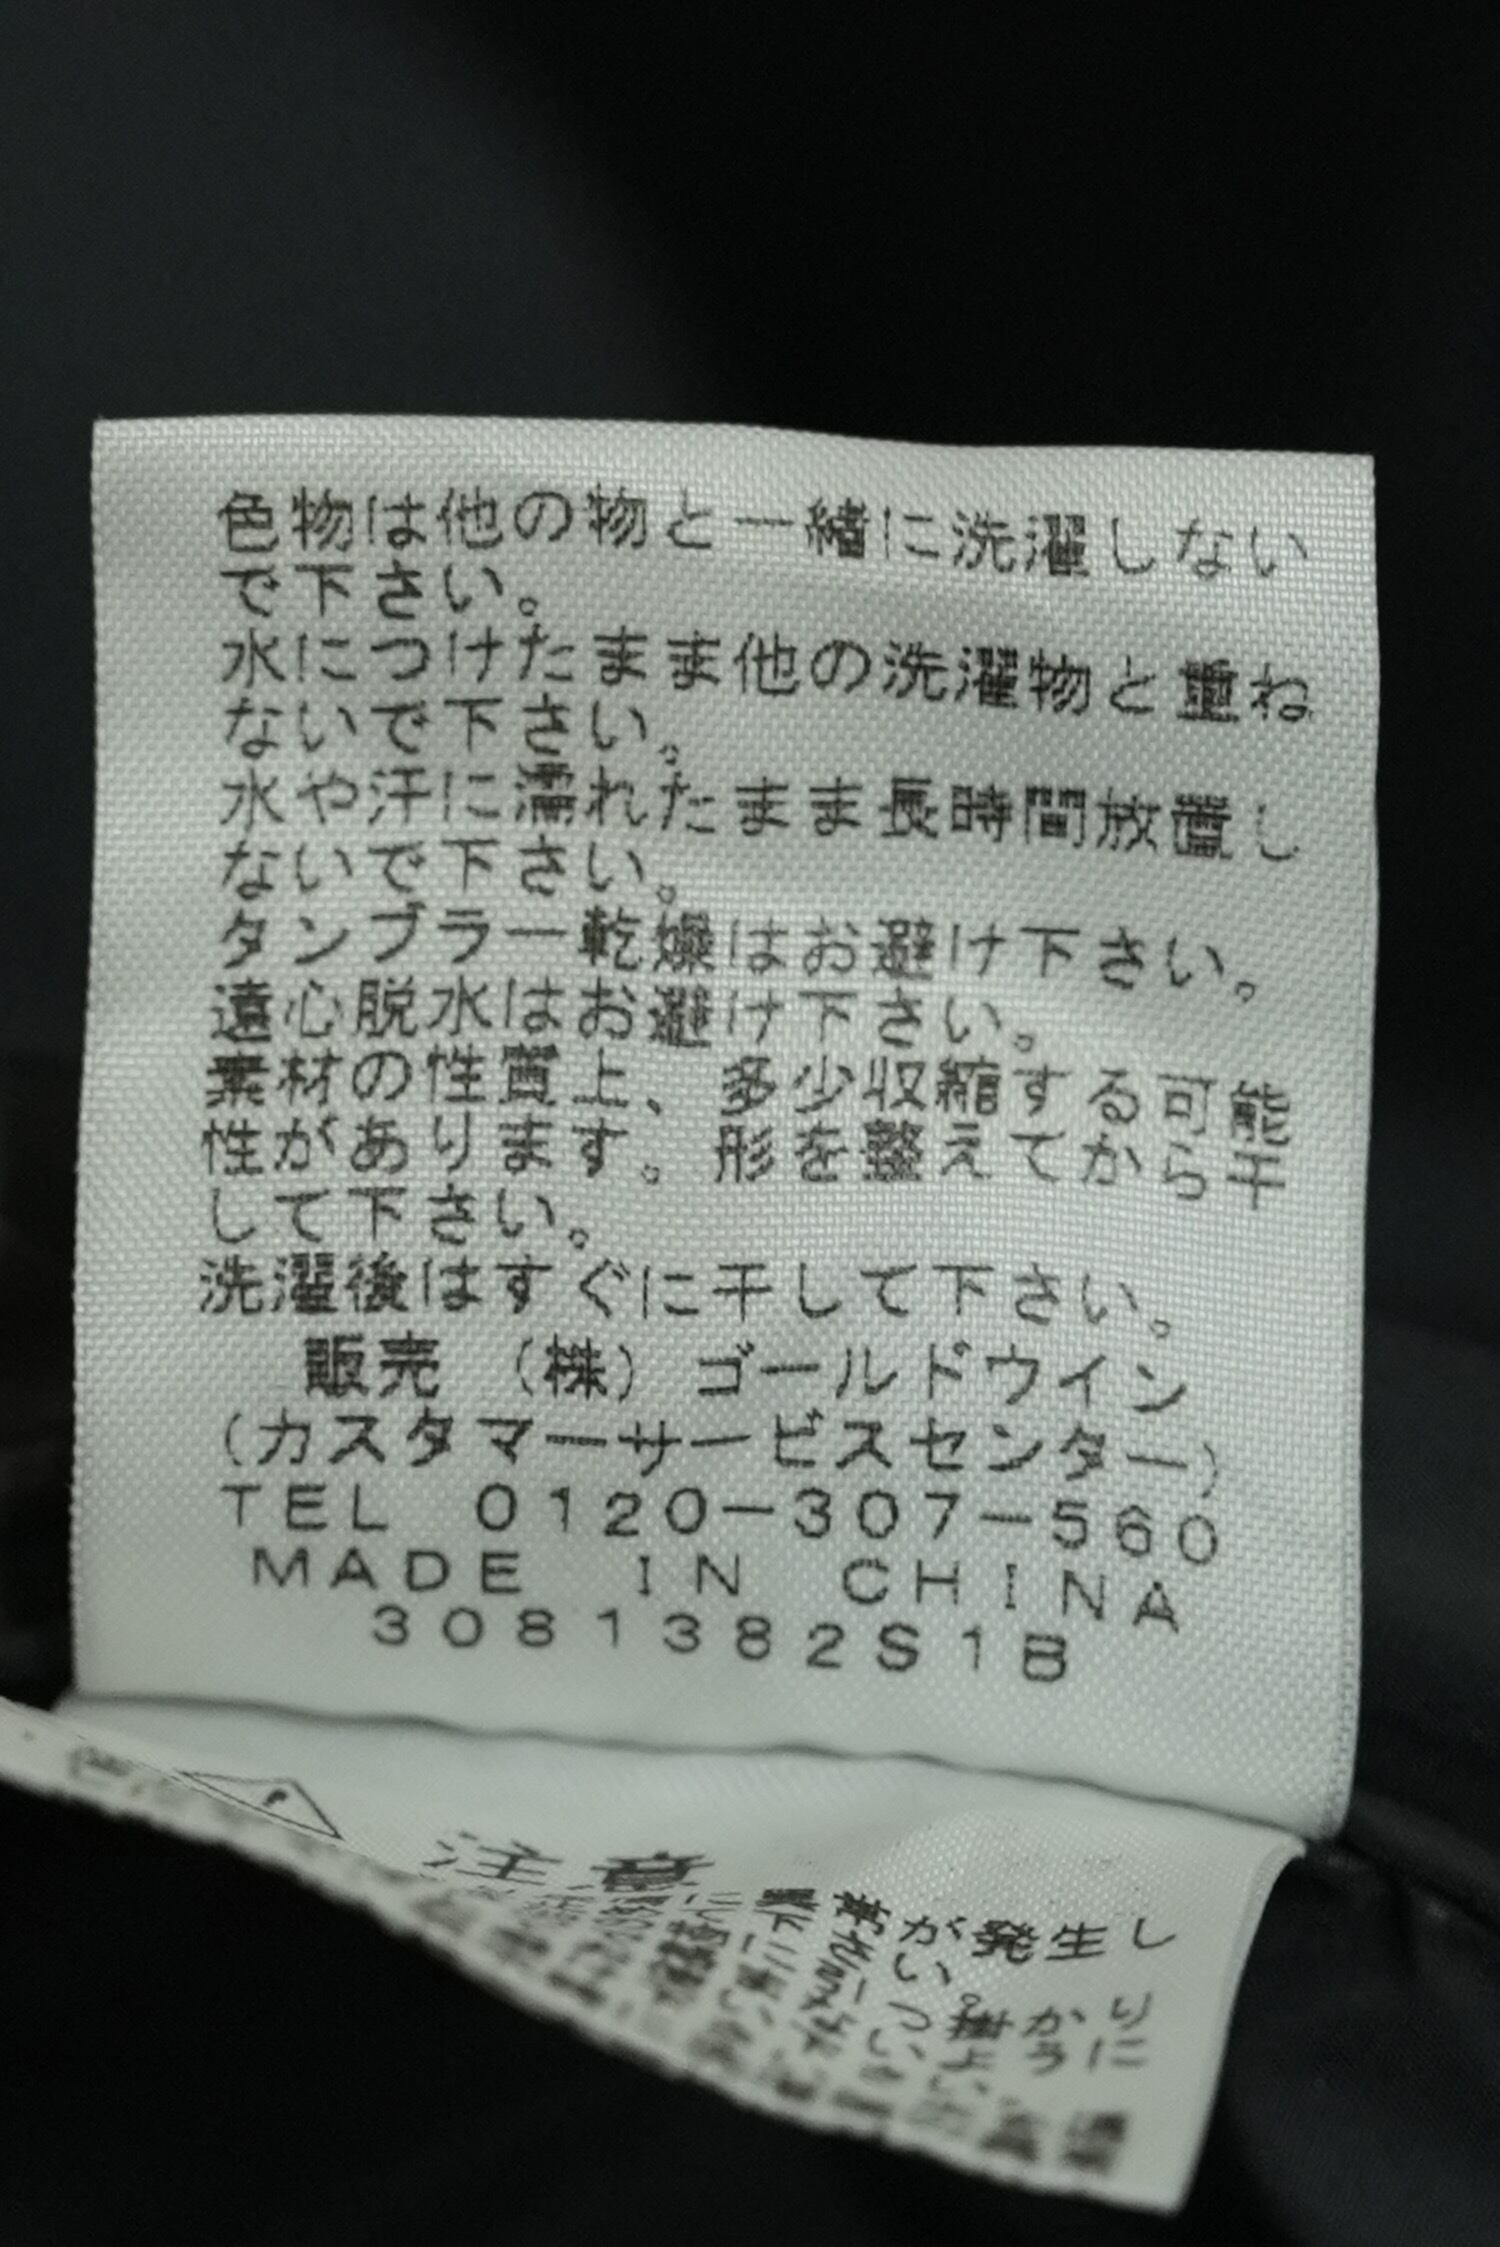 色物は他の物と一緒に洗濯しない
で下さい。
水につけたまま他の洗濯物と重ね
ないで下さい。
水や汗に濡れたまま長時間放置し
ないで下さい。
タンブラー乾燥はお避け下さい。
遠心脱水はお避け下さい。
素材の性質上、多少収縮する可能
性があります。形を整えてから干
して下さい。
洗濯後はすぐに干して下さい。
販売 (株)ゴールドウイン
(カスタマーサービスセンター)
TEL 0120-307-560
MADE IN CHINA
3081382S1B
注意
が発生し
い。